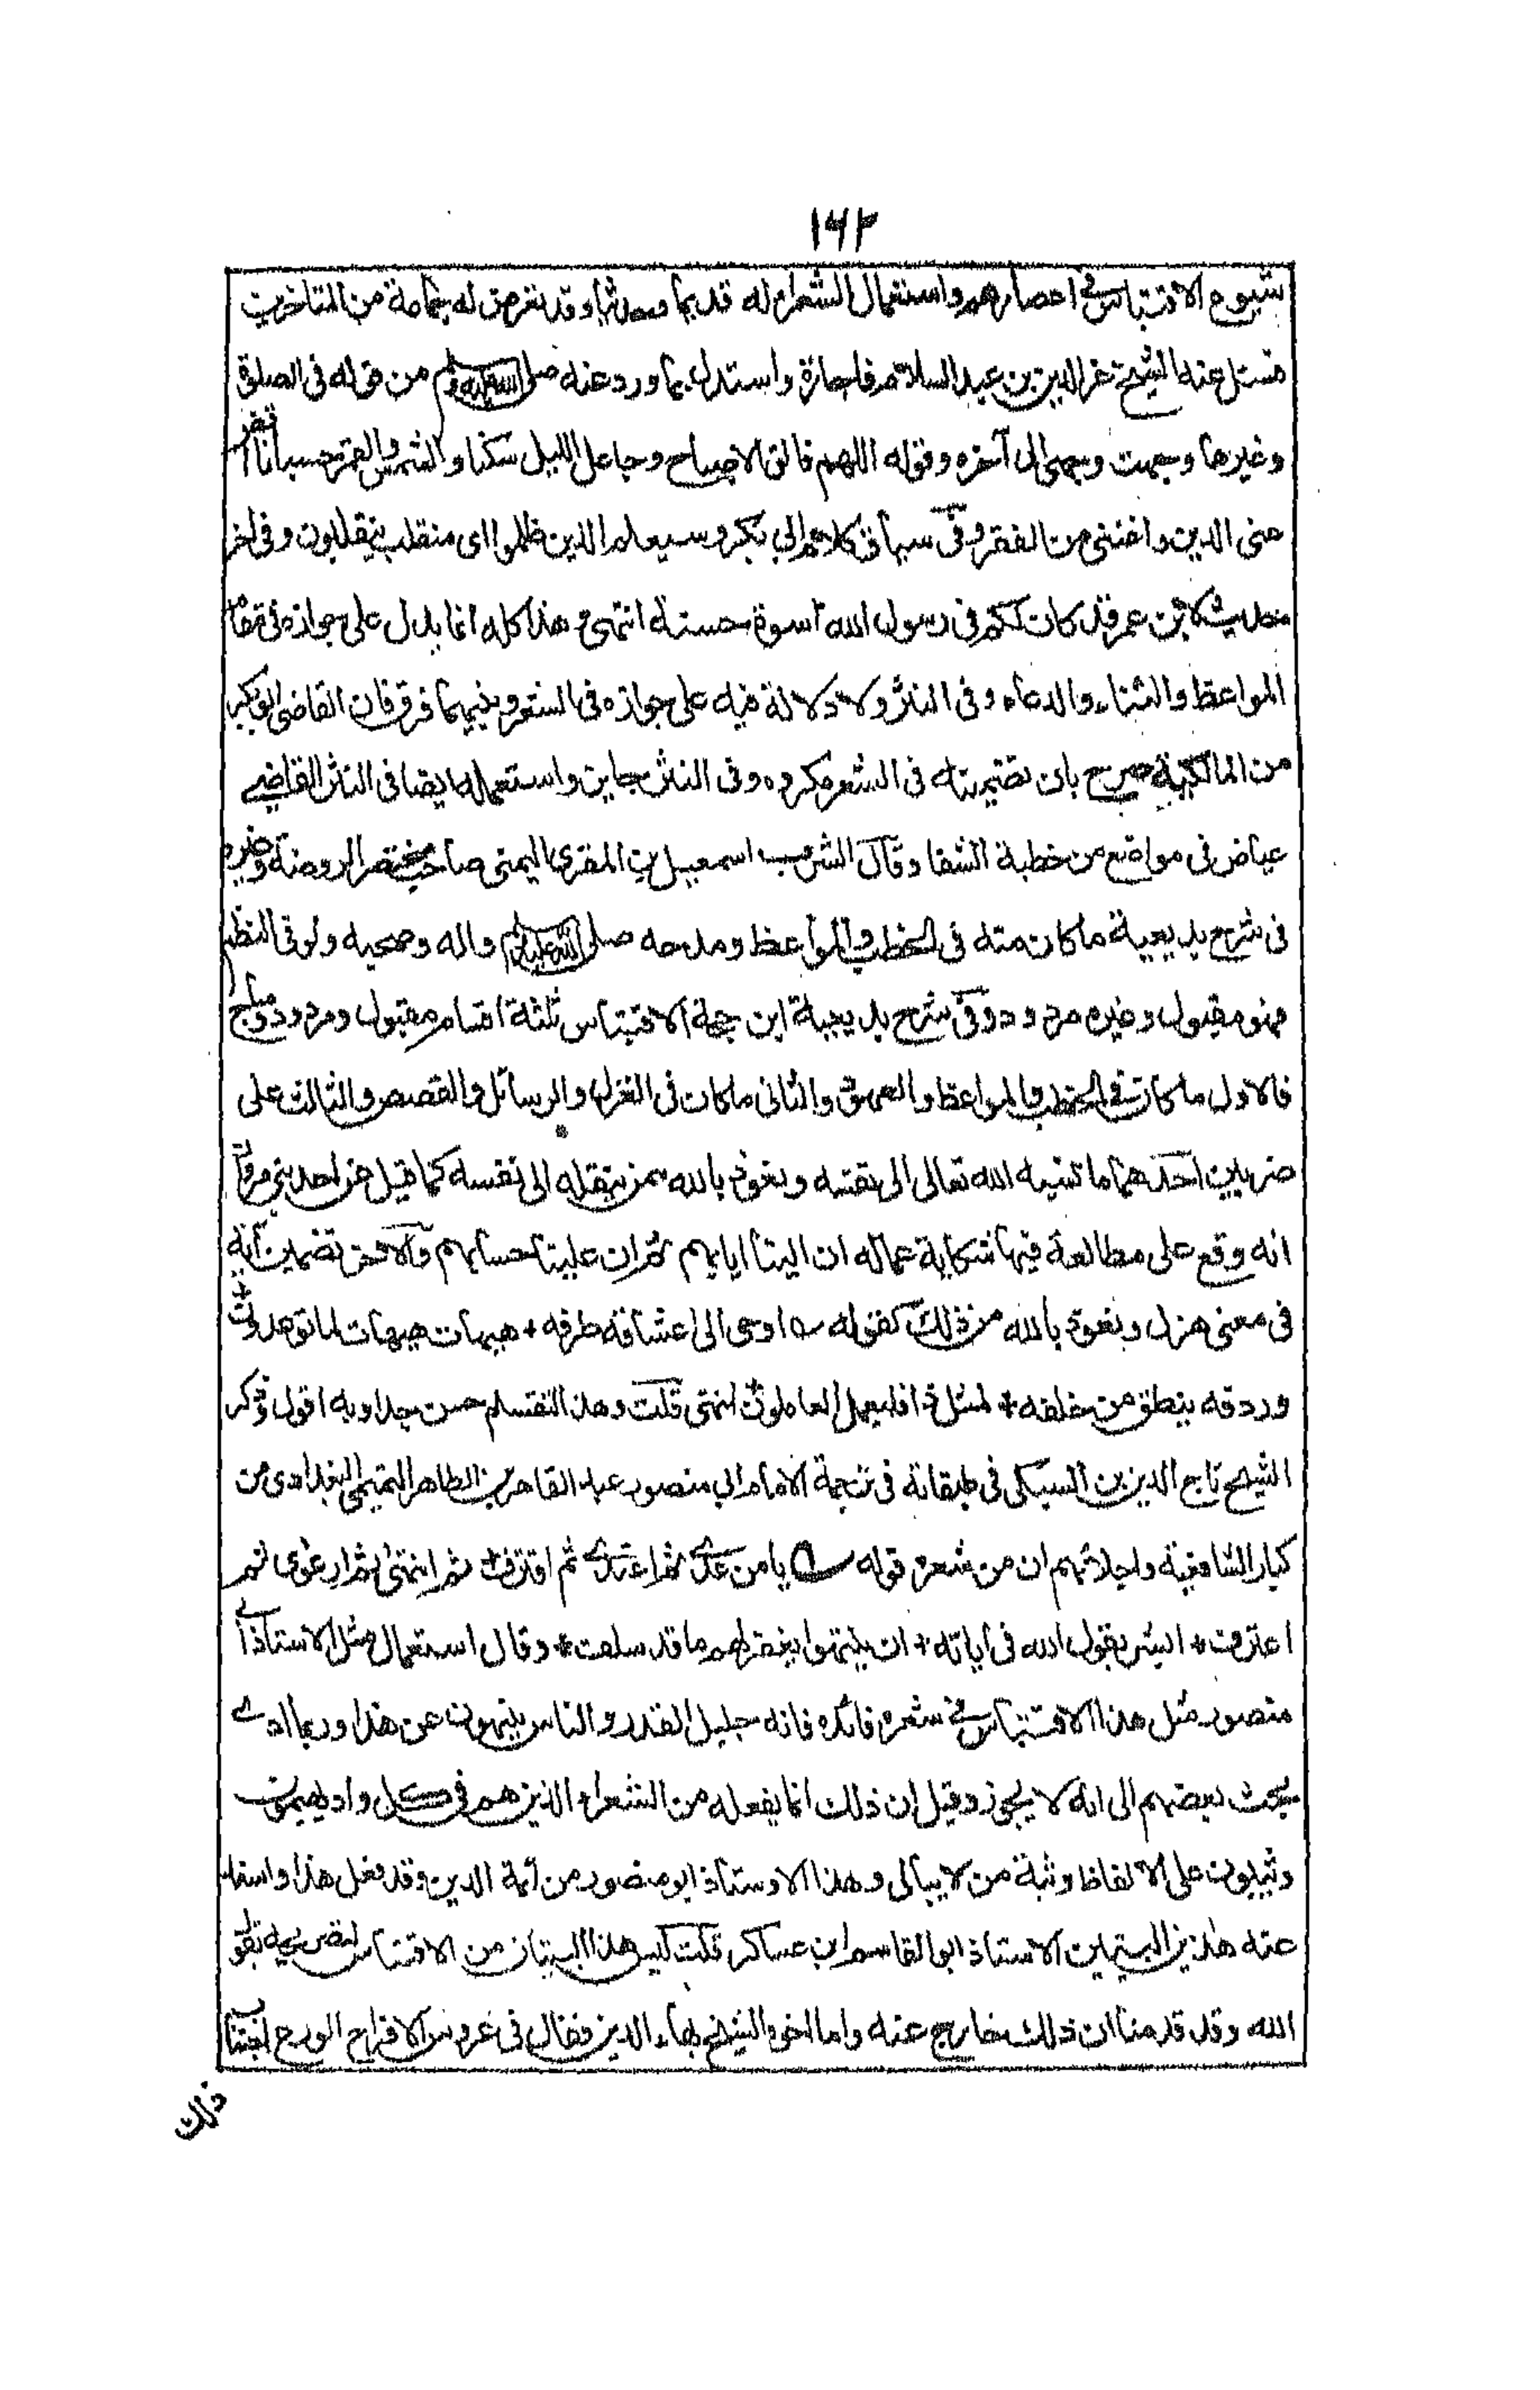 ١٦٢
شيوع الاقتباس في اعصارهم واستعمال الشعراء له قديما وحديثا وقد تعرض له جماعة من المتاخرين
فسئل عنه الشيخ عز الدين بن عبد السلام فاجازه واستدل بما ورد عنه صلى الله عليه وسلم من قوله في الصلوة
وغيرها وجهت وجهي الى آخره وقوله اللهم فالق الاصباح وجاعل الليل سكنا والشمس والقمر حسبانا اقض
عني الدين واغنني من الفقر وفي سياق كلام لابي بكر وسيعلم الذين ظلموا اي منقلب ينقلبون وفي اخر
حديث لابن عمر قد كان لكم في رسول الله اسوة حسنة انتهى وهذا كله انما يدل على جوازه في مقام
المواعظ والثناء والدعاء وفي النثر ولا دلالة فيه على جوازه في الشعر وبينهما فرق فان القاضي ابو بكر
من المالكية صرح بان تضمينه في الشعر مكروه وفي النثر جايز واستعمله ايضا في النثر القاضي
عياض في مواضع من خطبة الشفا وقال الشرف اسمعيل بن المقري اليمني صاحب مختصر الروضة وغيره
في شرح بديعية ما كان منه في الخطب والمواعظ ومدحه صلى الله عليه وسلم واله وصحبه ولو في النظم
فهو مقبول وغيره مردود وفي شرح بديعية ابن حجة الاقتباس ثلثة اقسام مقبول ومردود ومباح
فالاول ما كان في الخطب والمواعظ والعهود والثاني ما كان في الغزل والرسائل والقصص والثالث على
ضربين احدهما ما نسبه الله تعالى الى نفسه ونعوذ بالله ممن ينقله الى نفسه كما قيل عن احد بني مروان
انه وقع على مطالعة فيها شكاية عماله ان الينا ايابهم ثم ان علينا حسابهم والاخر تضمين آية
في معنى هزل ونعوذ بالله من ذلك كقوله اوحى الى عشاقه طرفه + هيهات هيهات لما توعدون +
وردفه ينطق من خلفه + لمثل ذا فليعمل العاملون انتهى قلت وهذا التقسيم حسن جدا وبه اقول وذكر
الشيخ تاج الدين بن السبكي في طبقاته في ترجمة الامام ابي منصور عبد القاهر بن الطاهر التميمي البغدادي من
كبار الشافعية واجلائهم ان من شعره قوله يا من عدى ثم اعتدى ثم اقترف ثم انتهى ثم ارعوى ثم
اعترف + ابشر بقول الله في اياته + ان ينتهوا يغفر لهم ما قد سلف + وقال استعمال مثل الاستاذ ابي
منصور مثل هذا الاقتباس في شعره فائده فانه جليل القدر والناس ينهون عن هذا وربما ادى
بحث بعضهم الى انه لا يجوز وقيل ان ذلك انما يفعله من الشعراء الذين هم في كل واد يهيمون
ويثبون على الالفاظ وثبة من لا يبالي وهذا الاوستاذ ابو منصور من أئمة الدين وقد فعل هذا واسند
عنه هذين البيتين الاستاذ ابو القاسم ابن عساكر قلت ليس هذا البيتان من الاقتباس لتصريحه بقول
الله وقد قدمنا ان ذلك خارج عنه واما اخوه الشيخ بهاء الدين فقال في عروس الافراح الورع اجتناب
ذلك